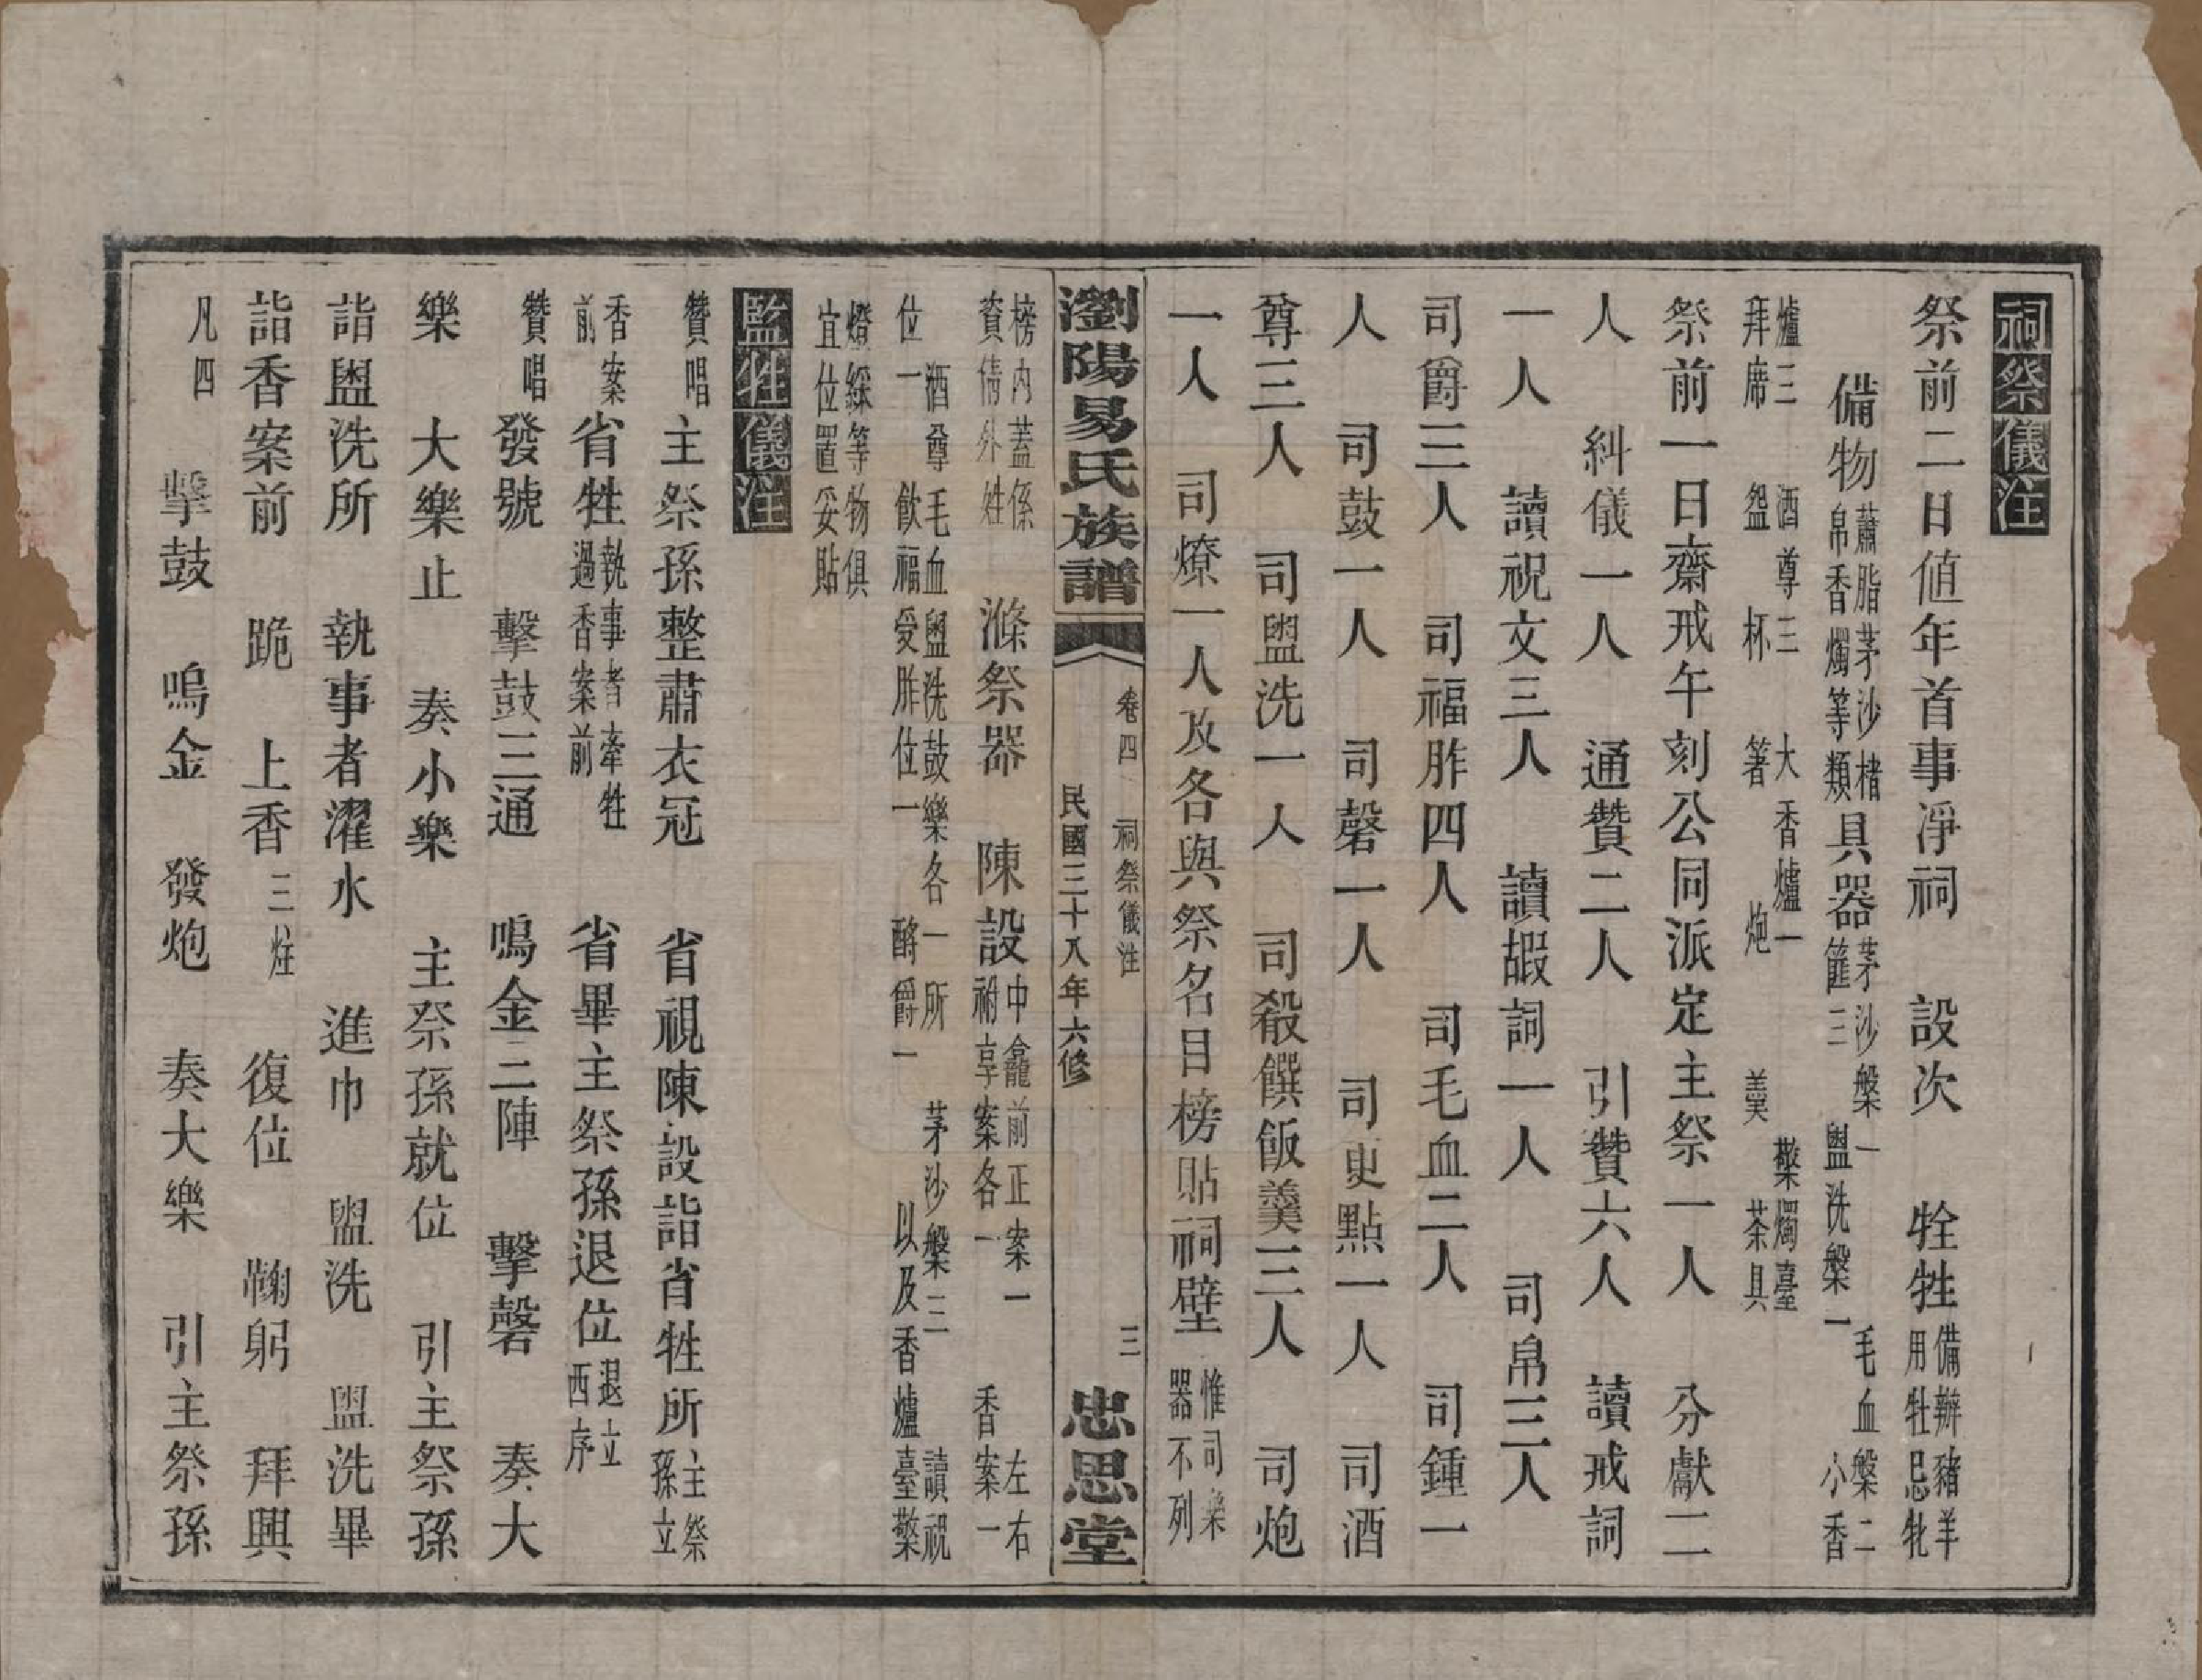 祠祭儀注
祭前二日値年首事淨祠　設次　牷牲備辦豬羊用牡忌牝
備物蕭脂茅沙楮帛香燭等類具器茅沙槃一　毛血槃二篚三　盥洗槃一　小香
爐三　酒尊三　大香爐一　檠燭臺拜席　盌　杯　箸　炮　羹　茶具
祭前一日齋戒午刻公同派定主祭一人　分獻二
人　糾儀一人　通贊二人　引贊六人　讀戒詞
一人　讀祝文三人　讀嘏詞一人　司帛三人
司爵三人　司福胙四人　司毛血二人　司鍾一
人　司鼓一人　司磬一人　司更點一人　司酒
尊三人　司盥洗一人　司殽饌飯羹三人　司炮
一人　司燎一人及各與祭名目榜貼祠壁惟司樂器不列
瀏陽易氏族譜　卷四　祠祭儀注　三
民國三十八年六修　忠思堂
榜內蓋係資倩外姓　滌祭器　陳設中龕前正案一　左右祔享案各一　香案一
位一　酒尊毛血盥洗鼓樂各一所　茅沙槃三　讀祝飲福受胙位一　酹爵一　以及香爐臺檠
燈綵等物俱宜位置妥貼
監牲儀注
贊唱　主祭孫整肅衣冠　省視陳設詣省牲所主祭孫立
香案前　省牲執事者牽牲過香案前　省畢主祭孫退位退立西序
贊唱　發號　擊鼓三通　鳴金二陣　擊磬　奏大
樂　大樂止　奏小樂　主祭孫就位　引主祭孫
詣盥洗所　執事者濯水　進巾　盥洗　盥洗畢
詣香案前　跪　上香三炷　復位　鞠躬　拜興
凡四　擊鼓　鳴金　發炮　奏大樂　引主祭孫